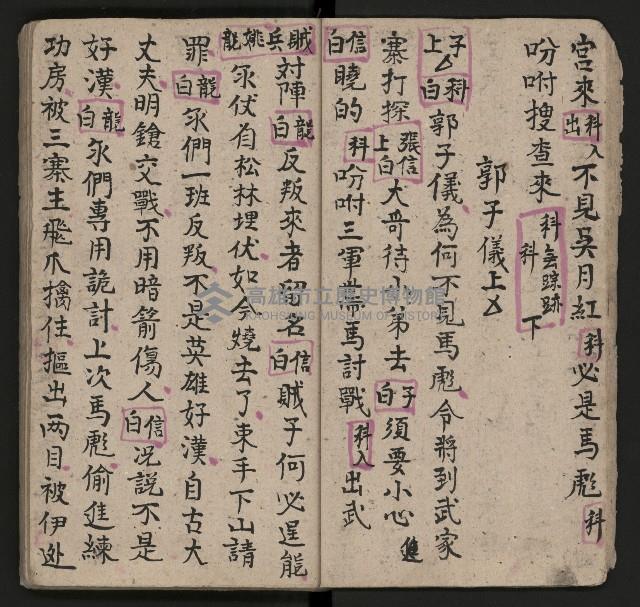 宮來科入出不見吳月紅科必是馬彪科
吩咐搜查來科無踪跡科下
郭子儀上
子上科白郭子儀為何不見馬彪令將到武家
寨打探張信上白大哥待小弟去子白須要小心進
信白曉的科吩咐三軍帶馬討戰科入出武
賊兵姚龍對陣龍白反叛來者留名信白賊子何必逞能
汞伏有松林埋伏如今燒去了束手下山請
罪龍白汞們一班反叛不是英雄好漢自古大
丈夫明鎗交戰不用暗箭傷人信白况説不是
好漢龍白汞們專用詭計上次馬彪偷進練
功房被三寨主飛爪擒住摳出両目被伊迯
高雄市立歷史博物館
KAOHSIUNG MUSEUM OF HISTORY